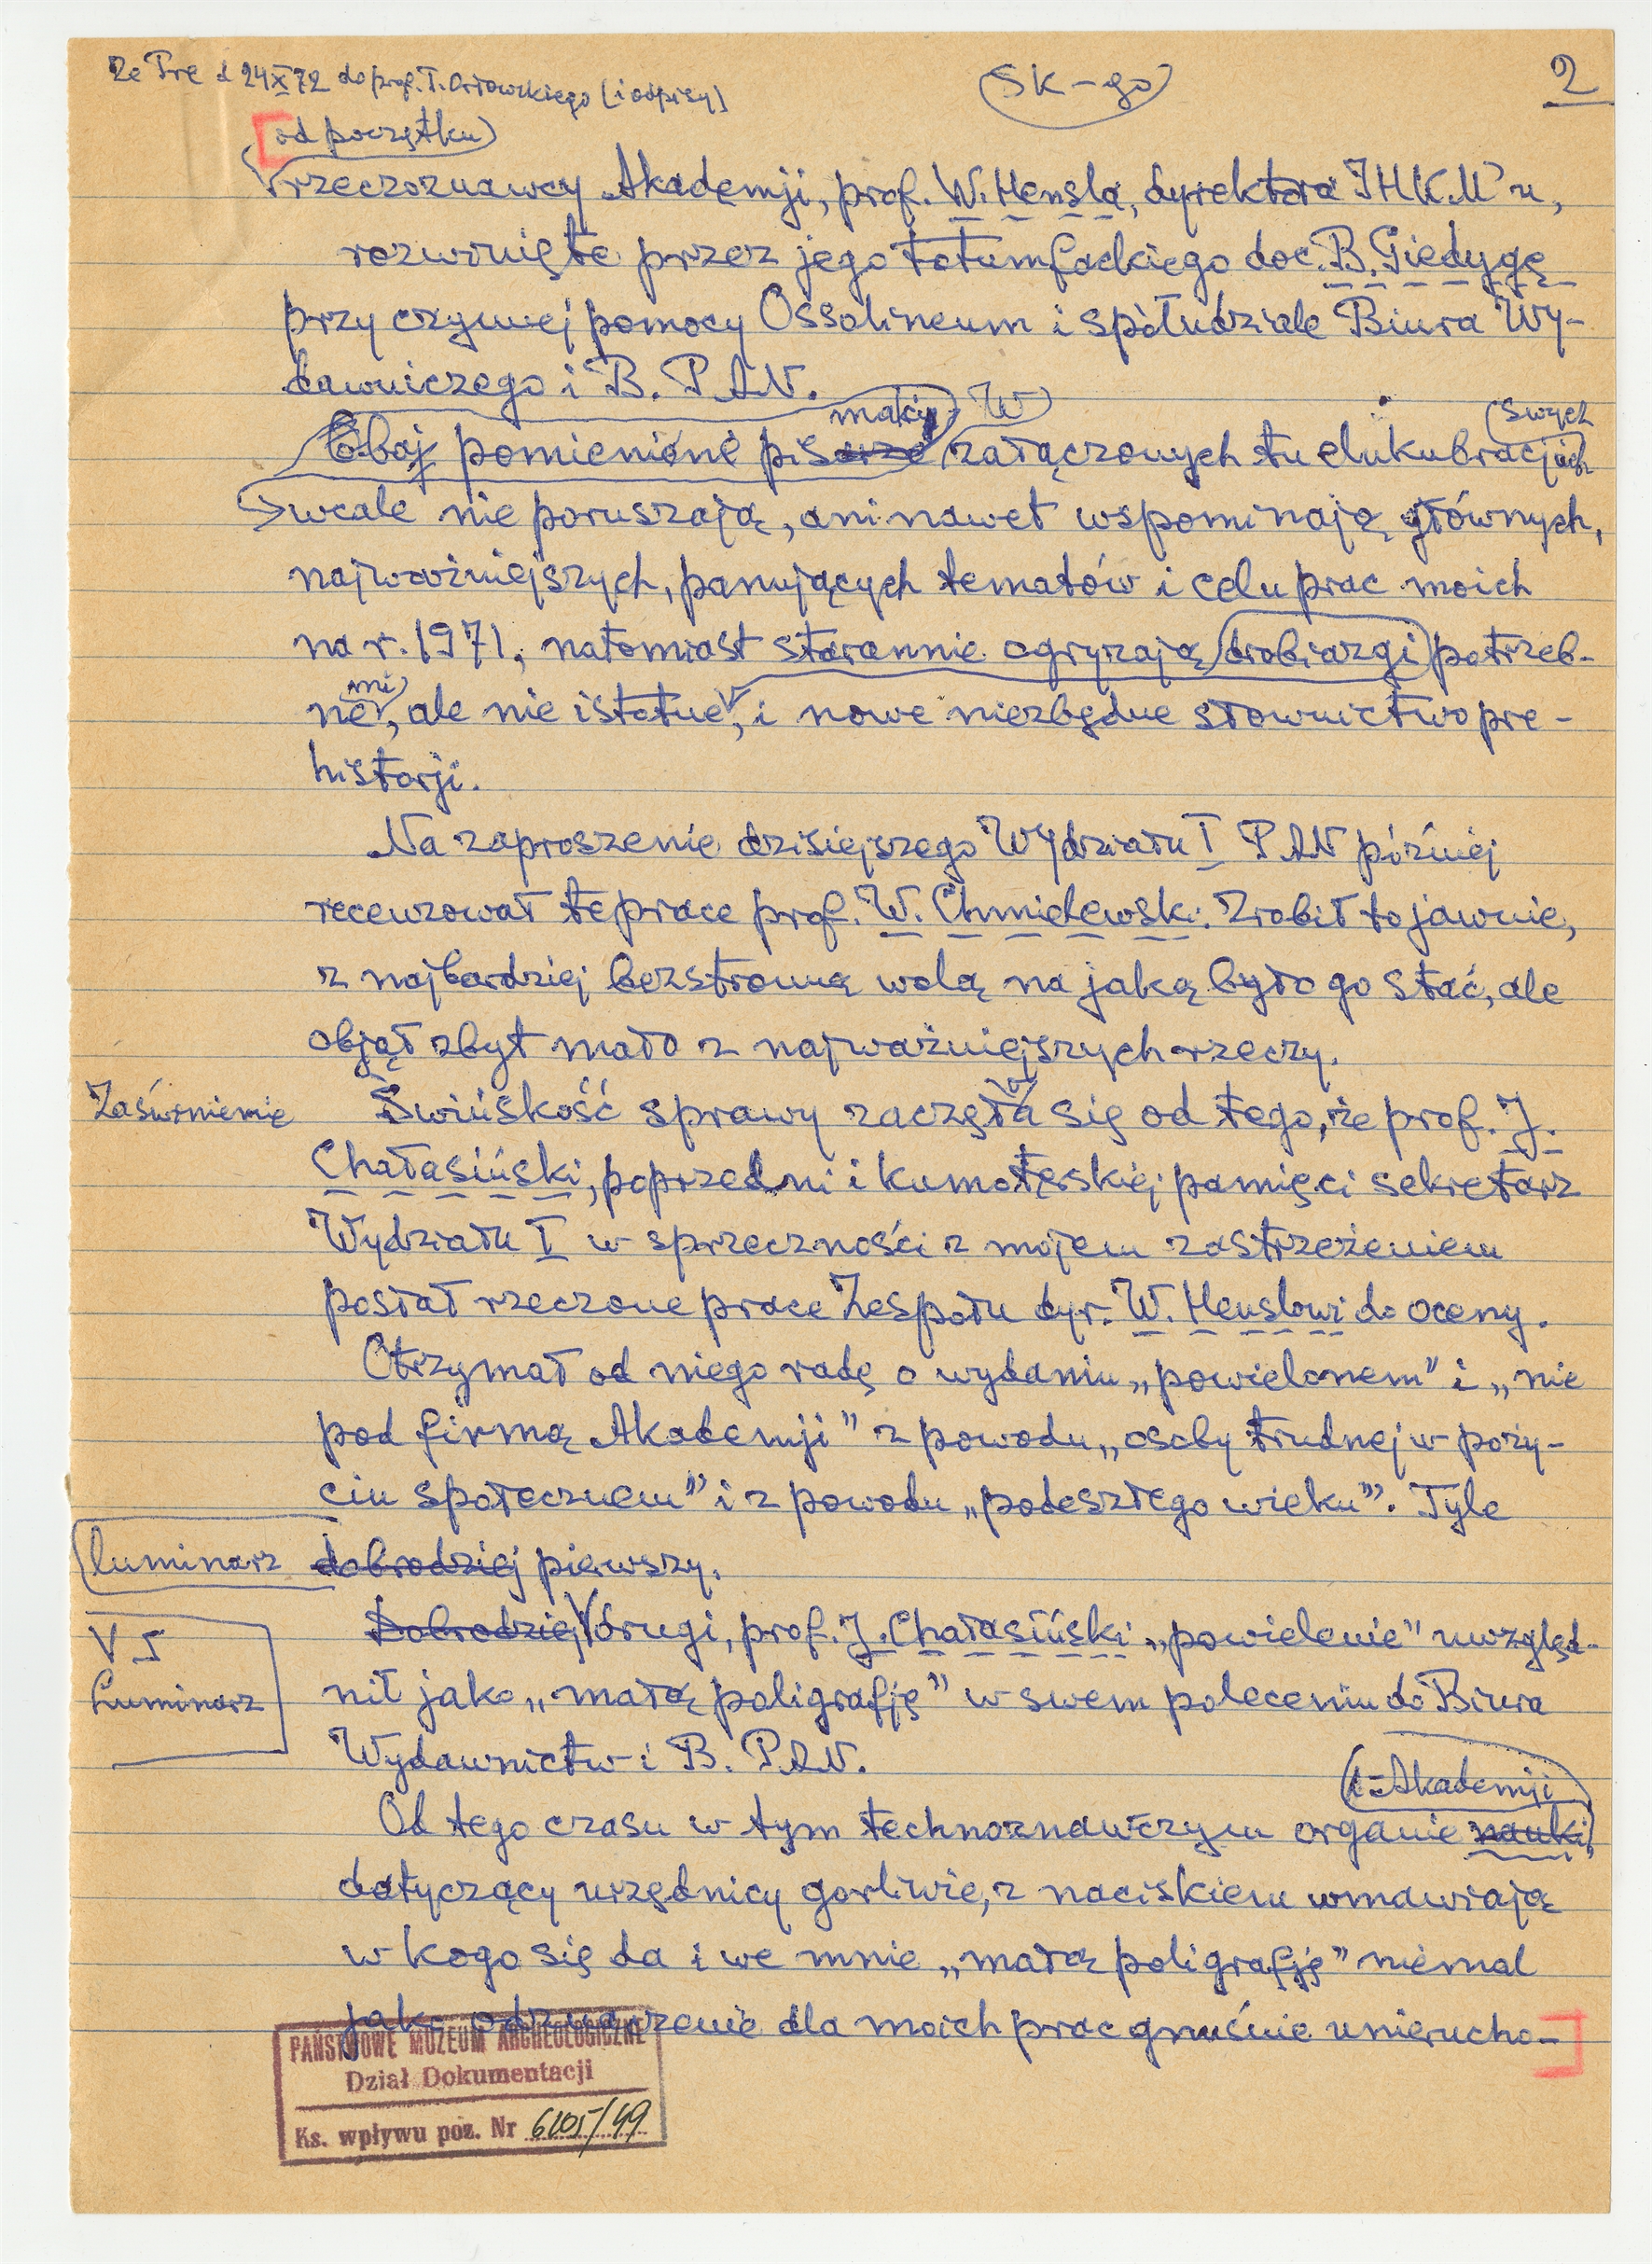 Ze Prę d 24 X 72 do prof. T. Orłowskiego [i odpisy]
Sk-go
2
od początku
rzeczoznawcy Akademji, prof. W. Hensla, dyrektora IHKM'u,
rozwinięte przez jego totumfackiego doc. B. Giedygę
przy czynnej pomocy Ossolineum i spółudziale Biura Wy-
dawniczego i B. PAN.
maki W swych
Obaj pomienione pisarze załączonych tu elukubracjach
wcale nie poruszają, ani nawet wspominają głównych,
najważniejszych, panujących tematów i celu prac moich
na r. 1971, natomiast starannie ogryzają drobiazgi potrzeb-
mi
ne, ale nie istotne, i nowe niezbędne słownictwo pre-
historji.
Na zaproszenie dzisiejszego Wydziału I PAN później
recenzował te prace prof. W. Chmielewski. Zrobił to jawnie,
z najbardziej bezstronną wolą na jaką było go stać, ale
objął zbyt mało z najważniejszych rzeczy.
Zaświnienie
Świńskość sprawy zaczęła się od tego, że prof. J.
Chałasiński, poprzedni i kumoterskiej pamięci sekretarz
Wydziału I w sprzeczności z mojem zastrzeżeniem
posłał rzeczone prace Zespołu dyr. W. Henslowi do oceny.
Otrzymał od niego radę o wydaniu „powielonem" i „nie
pod firmą Akademji" z powodu „osoby trudnej w poży-
ciu społecznem" i z powodu „podeszłego wieku". Tyle
luminarz dobrodziej pierwszy.
Dobrodziej drugi, prof. J. Chałasiński „powielenie" uwzględ-
V
Luminarz
nił jako „małą poligrafję" w swem poleceniu do Biura
Wydawnictw i B. PAN.
Akademji
Od tego czasu w tym technoznawczym organie nauki
dotyczący urzędnicy gorliwie, z naciskiem wmawiają
w kogo się da i we mnie „małą poligrafję" niemal
jako odznaczenie dla moich prac gnuśnie unierucho-
PAŃSTWOWE MUZEUM ARCHEOLOGICZNE
Dział Dokumentacji
Ks. wpływu poz. Nr 6105/49